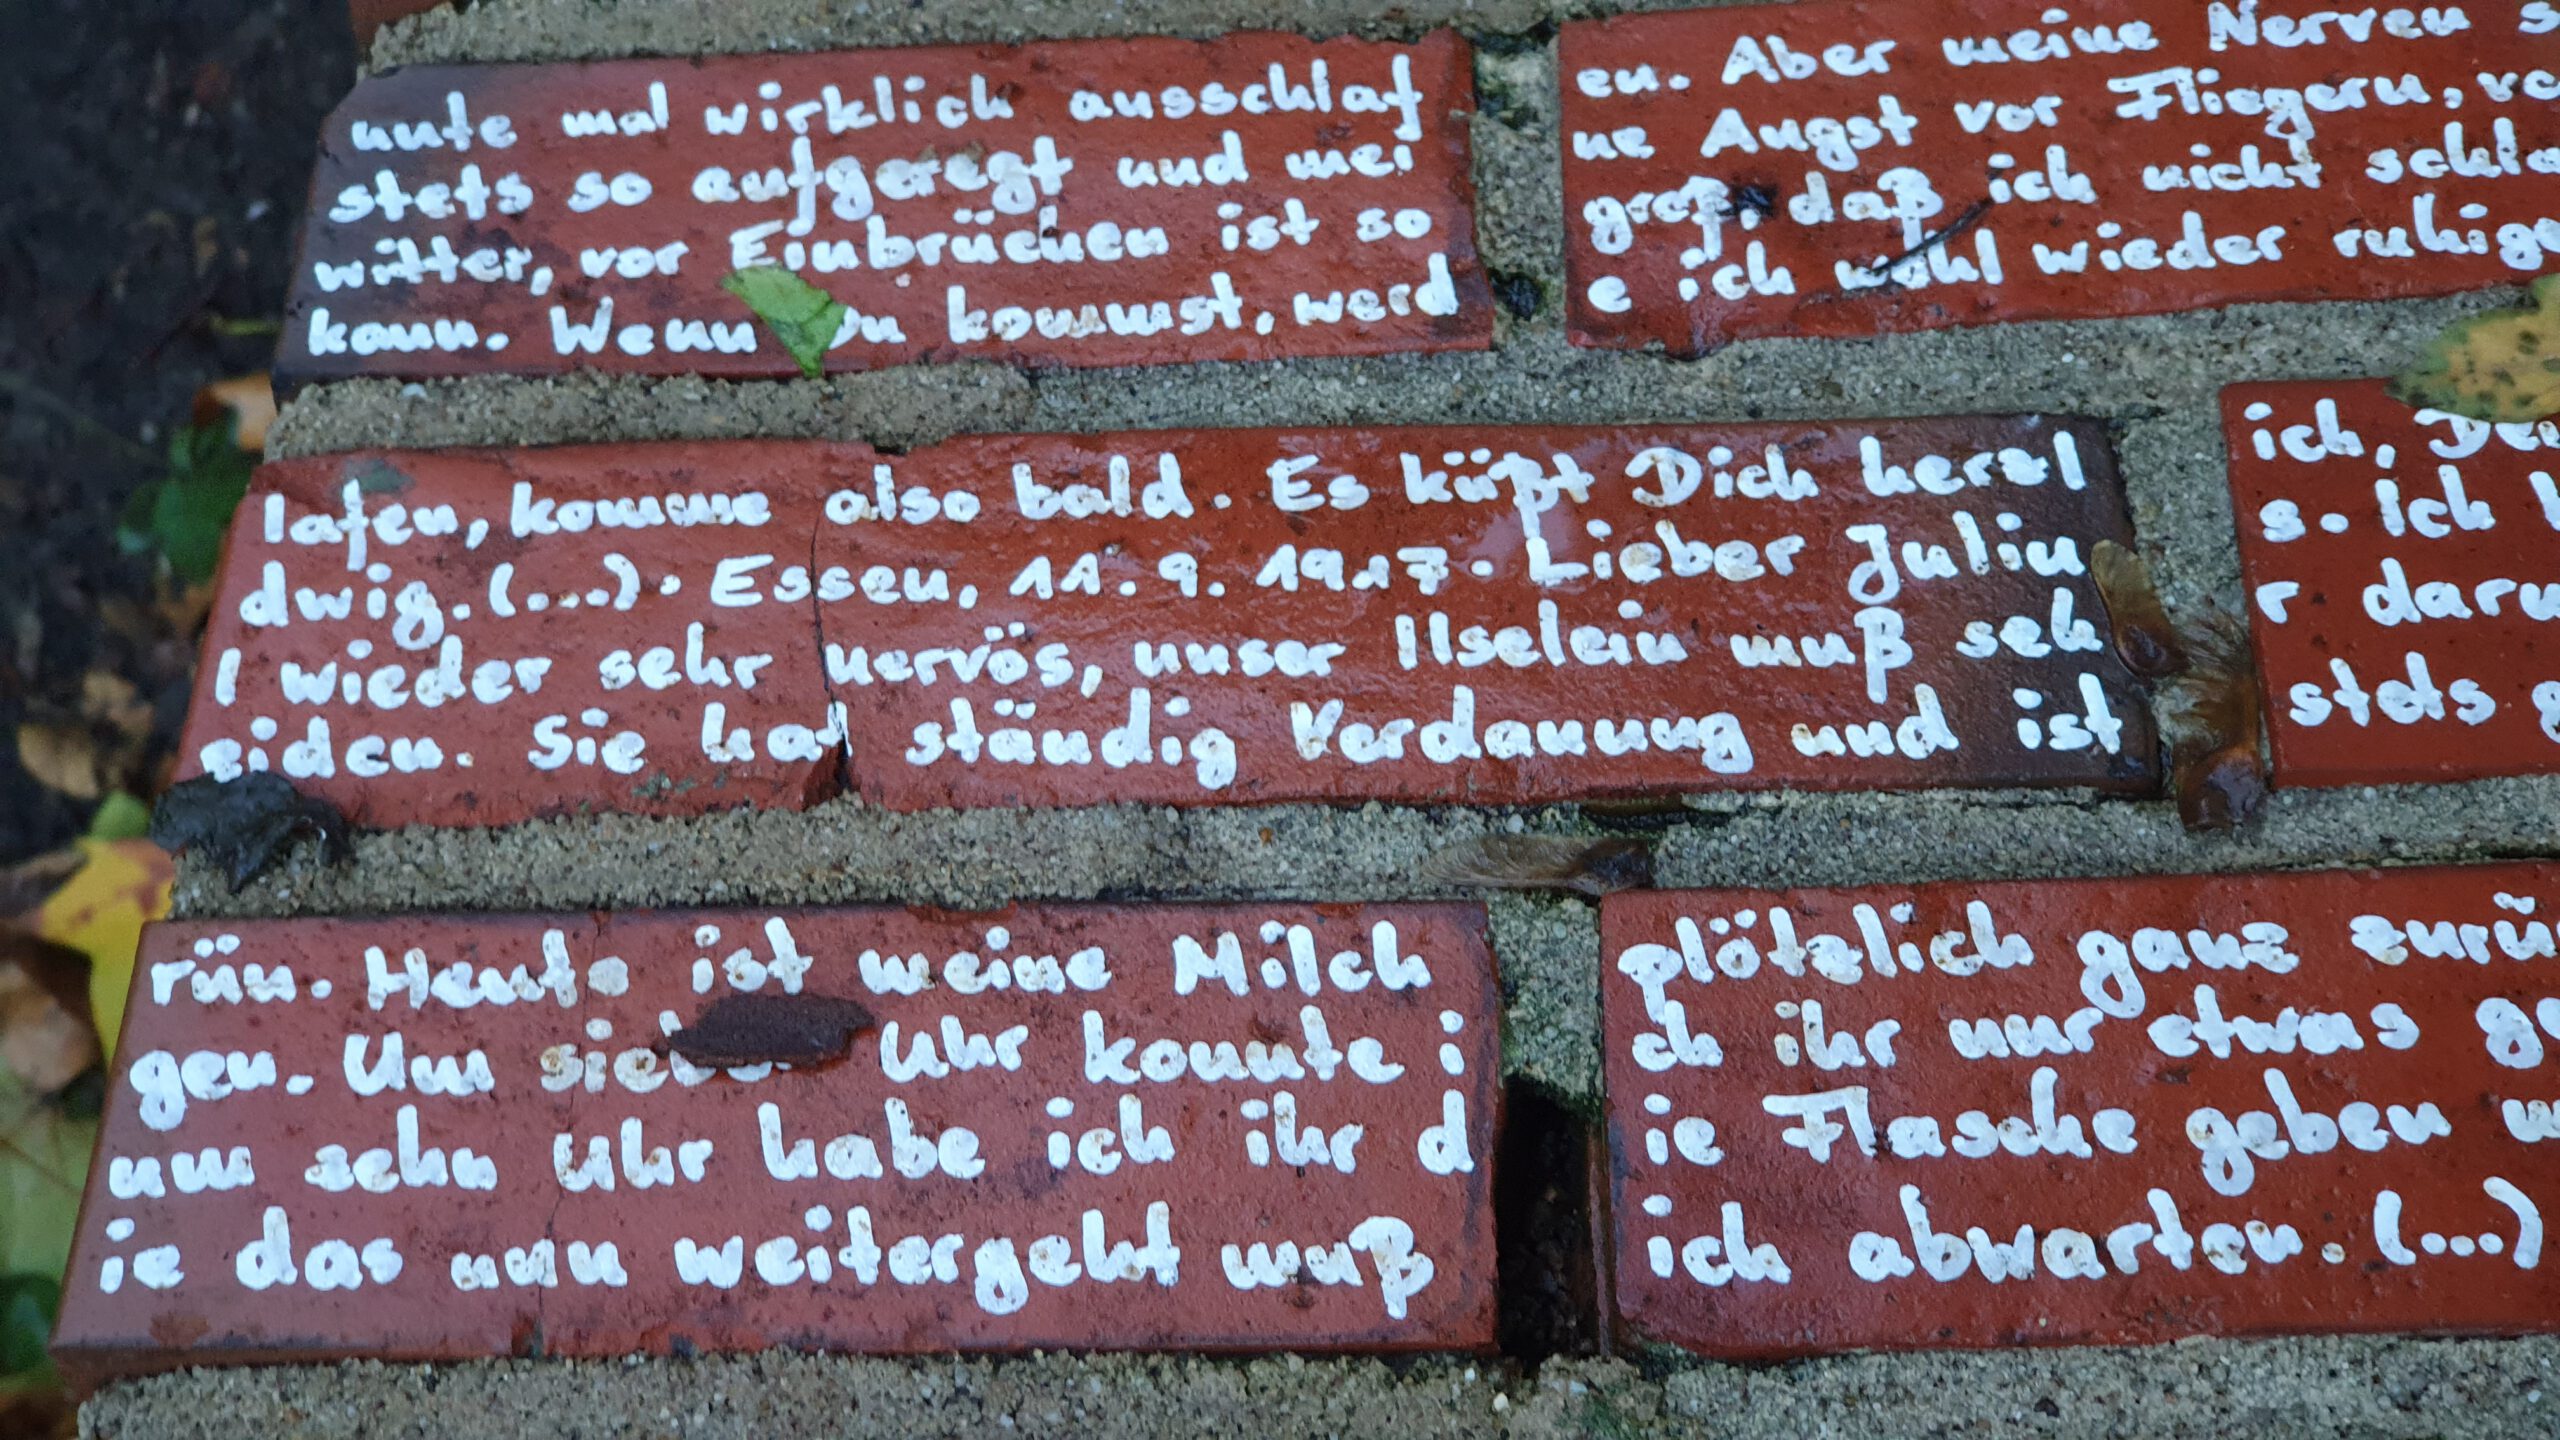 nnte mal wirklich ausschlaf en. Aber meine Nerven s
stets so aufgeregt und mei ne Angst vor Fliegern, vo
witter, vor Einbrüchen ist so groß, daß ich nicht schla
kann. Wenn Du kommst, werd e ich wohl wieder ruhige
lafen, komme also bald. Es küßt Dich herzl ich, Dei
dwig. (...). Essen, 11.9.1917. Lieber Juliu s. Ich
l wieder sehr nervös, unser Ilselein muß seh r daru
eiden. Sie hat ständig Verdauung und ist stets g
rün. Heute ist meine Milch plötzlich ganz zurü
gen. Um sieben Uhr konnte i ch ihr nur etwas ge
um zehn Uhr habe ich ihr d ie Flasche geben w
ie das nun weitergeht muß ich abwarten. (...)